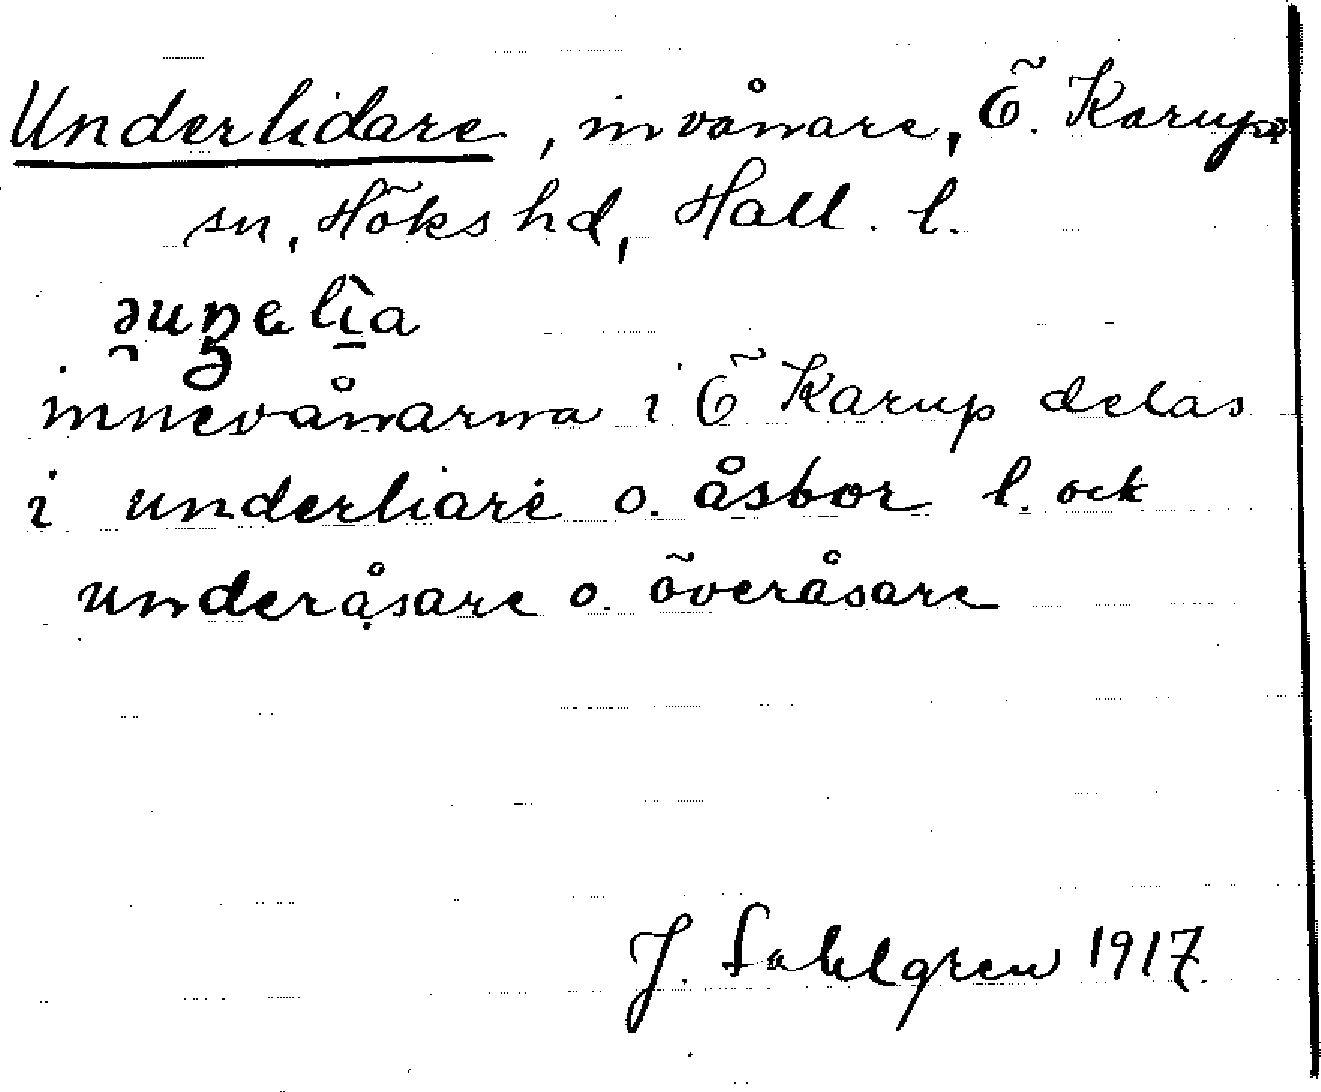 Underlidare, invånare, Ö. Karups
sn, Höks hd, Hall. l.
innevånarna i Ö Karup delas
i underliare o. åsbor l. ock
underåsare o. överåsare
J. Sahlgren 1917.